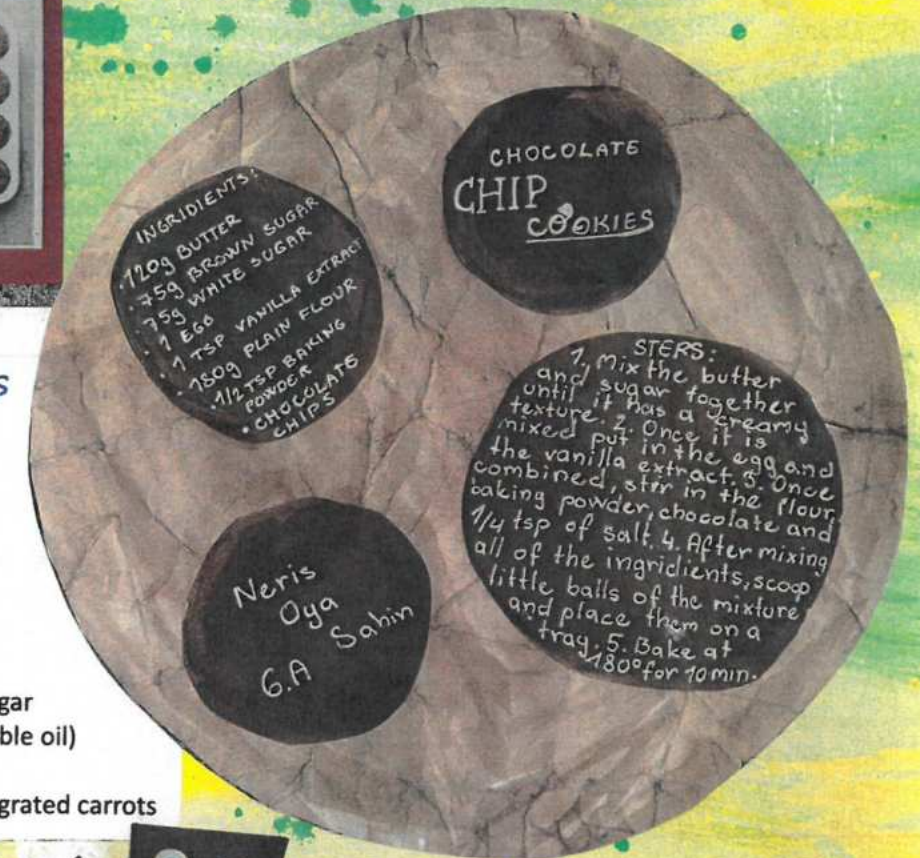 CHOCOLATE
CHIP
COOKIES
INGRIDIENTS:
·120g BUTTER
·75g BROWN SUGAR
·75g WHITE SUGAR
·1 EGG
·1 TSP VANILLA EXTRACT
·180g PLAIN FLOUR
·1/2 TSP BAKING
POWDER
·CHOCOLATE
CHIPS
STEPS:
1. Mix the butter
and sugar together
until it has a creamy
texture. 2. Once it is
mixed put in the egg and
the vanilla extract. 3. Once
combined, stir in the flour,
baking powder, chocolate and
1/4 tsp of salt. 4. After mixing
all of the ingridients, scoop
little balls of the mixture
and place them on a
tray. 5. Bake at
180° for 10 min.
Neris
Oya
Sahin
6.A
s
gar
ble oil)
grated carrots